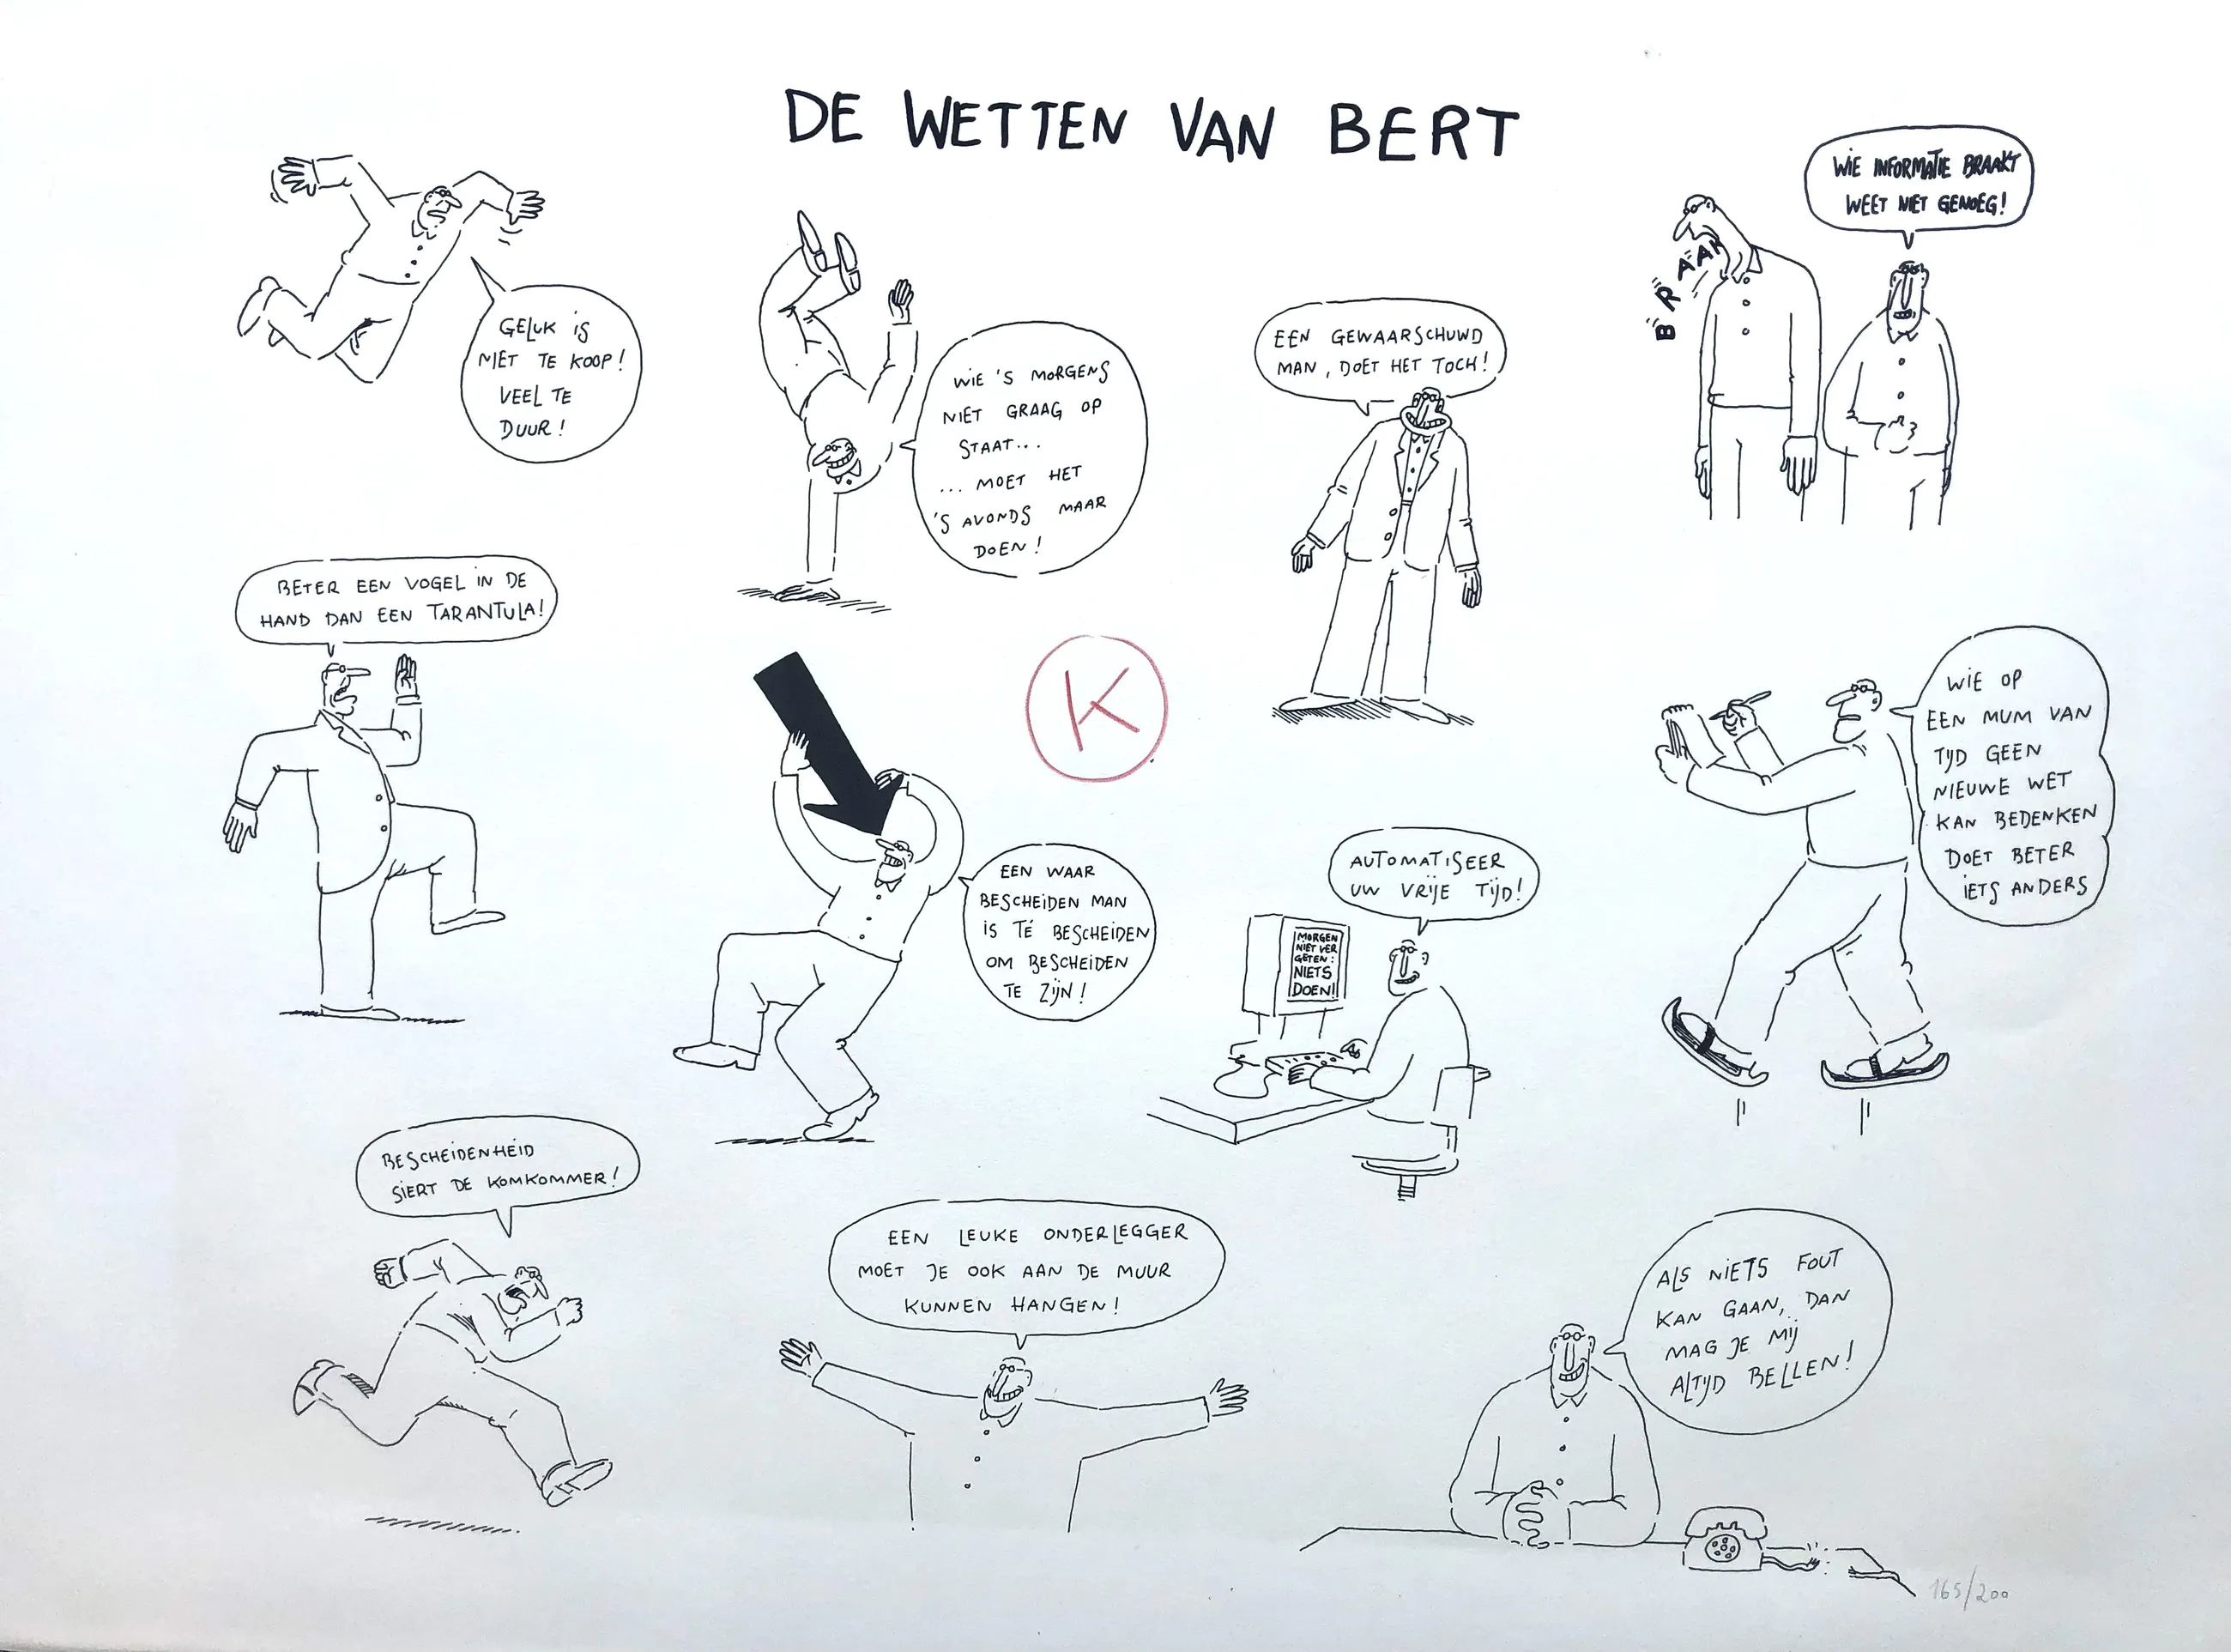 DE WETTEN VAN BERT
GELUK IS
NIET TE KOOP!
VEEL TE
DUUR!
WIE 'S MORGENS
NIET GRAAG OP
STAAT...
... MOET HET
'S AVONDS MAAR
DOEN!
EEN GEWAARSCHUWD
MAN, DOET HET TOCH!
WIE INFORMATIE BRAAKT
WEET NIET GENOEG!
BRAAK
BETER EEN VOGEL IN DE
HAND DAN EEN TARANTULA!
K
EEN WAAR
BESCHEIDEN MAN
IS TÉ BESCHEIDEN
OM BESCHEIDEN
TE ZIJN!
AUTOMATISEER
UW VRIJE TIJD!
MORGEN
NIET VER
GETEN:
NIETS
DOEN!
WIE OP
EEN MUM VAN
TIJD GEEN
NIEUWE WET
KAN BEDENKEN
DOET BETER
IETS ANDERS
BESCHEIDENHEID
SIERT DE KOMKOMMER!
EEN LEUKE ONDERLEGGER
MOET JE OOK AAN DE MUUR
KUNNEN HANGEN!
ALS NIETS FOUT
KAN GAAN, DAN
MAG JE MIJ
ALTIJD BELLEN!
165/200